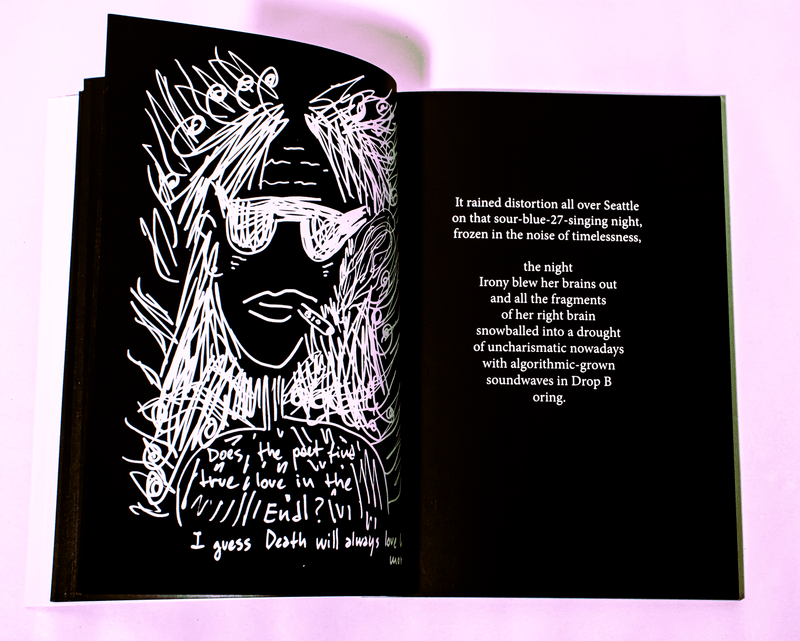 Does the poet find
true love in the
End?
I guess Death will always love
It rained distortion all over Seattle
on that sour-blue-27-singing night,
frozen in the noise of timelessness,
the night
Irony blew her brains out
and all the fragments
of her right brain
snowballed into a drought
of uncharismatic nowadays
with algorithmic-grown
soundwaves in Drop B
oring.